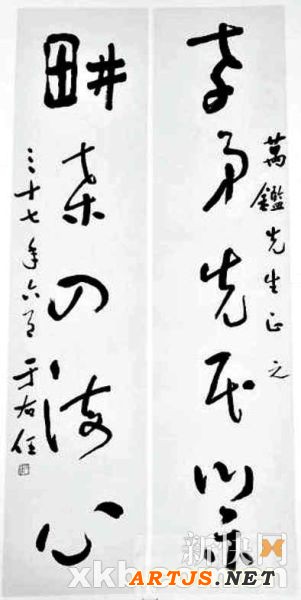 孝弟先民
萬鑑先生正之
畊桒四海心
三十七年六月 于右任
新快网
ARTJS.NET